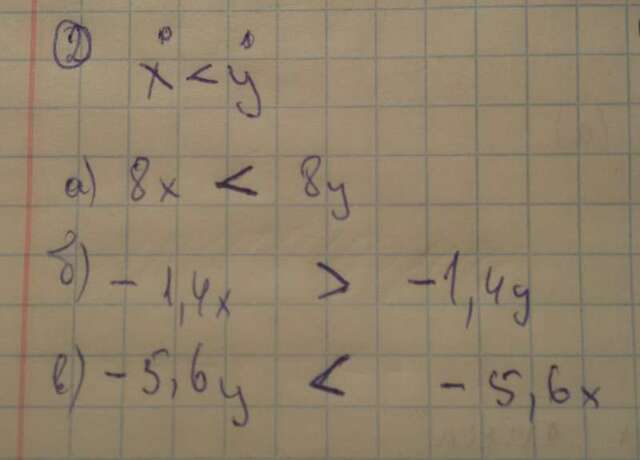 2) x < y
а) 8x < 8y
б) - 1,4x > -1,4y
в) - 5,6y < - 5,6x